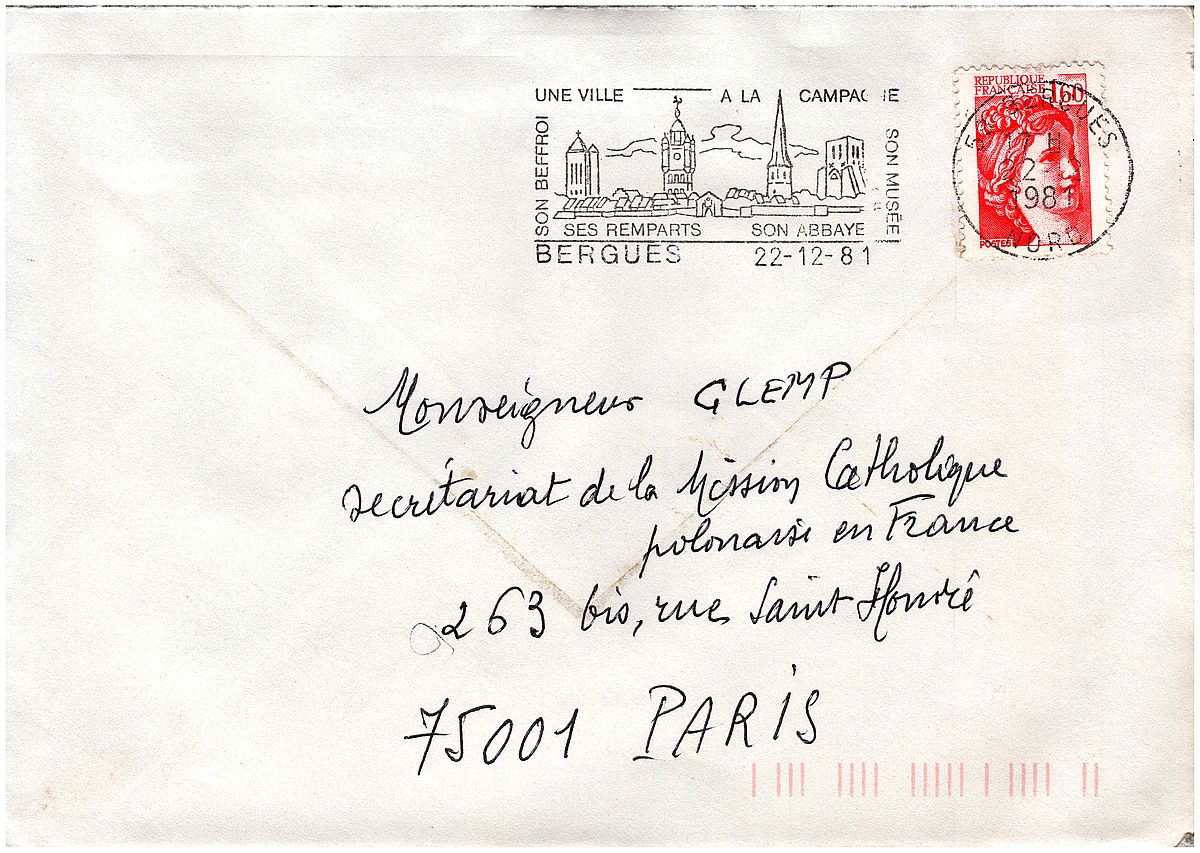 UNE VILLE A LA CAMPAGNE
SON BEFFROI
SON MUSÉE
SES REMPARTS SON ABBAYE
BERGUES 22-12-81
REPUBLIQUE
FRANÇAISE 1,60
POSTES
59 BERGUES
17 H
22 12
1981
NORD
Monseigneur GLEMP
secrétariat de la Mission Catholique
polonaise en France
263 bis, rue Saint Honoré
75001 PARIS